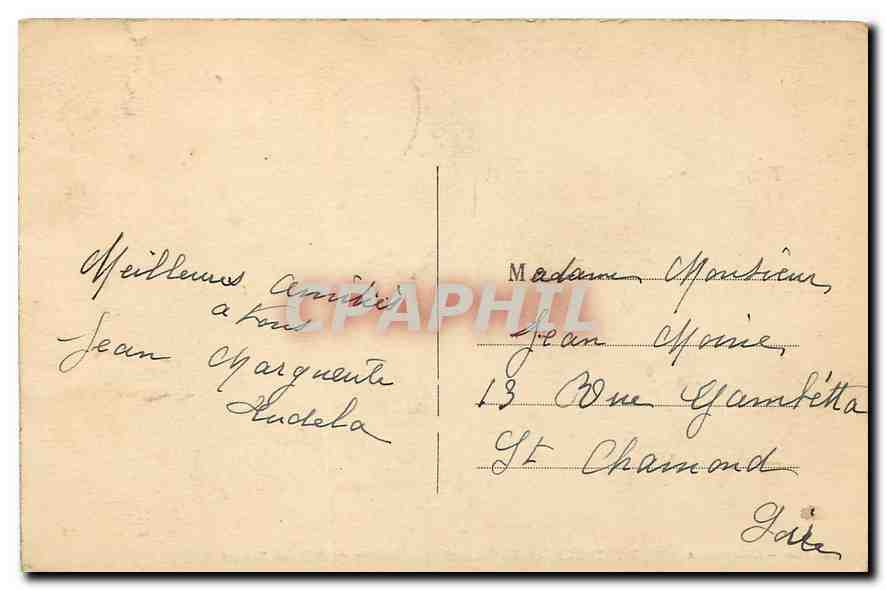 Meilleures amitiés
a tous
Jean Marguerite
Madame, Monsieur,
Jean Moine,
13 Rue Gambetta
St Chamond
Loire
CPAPHIL